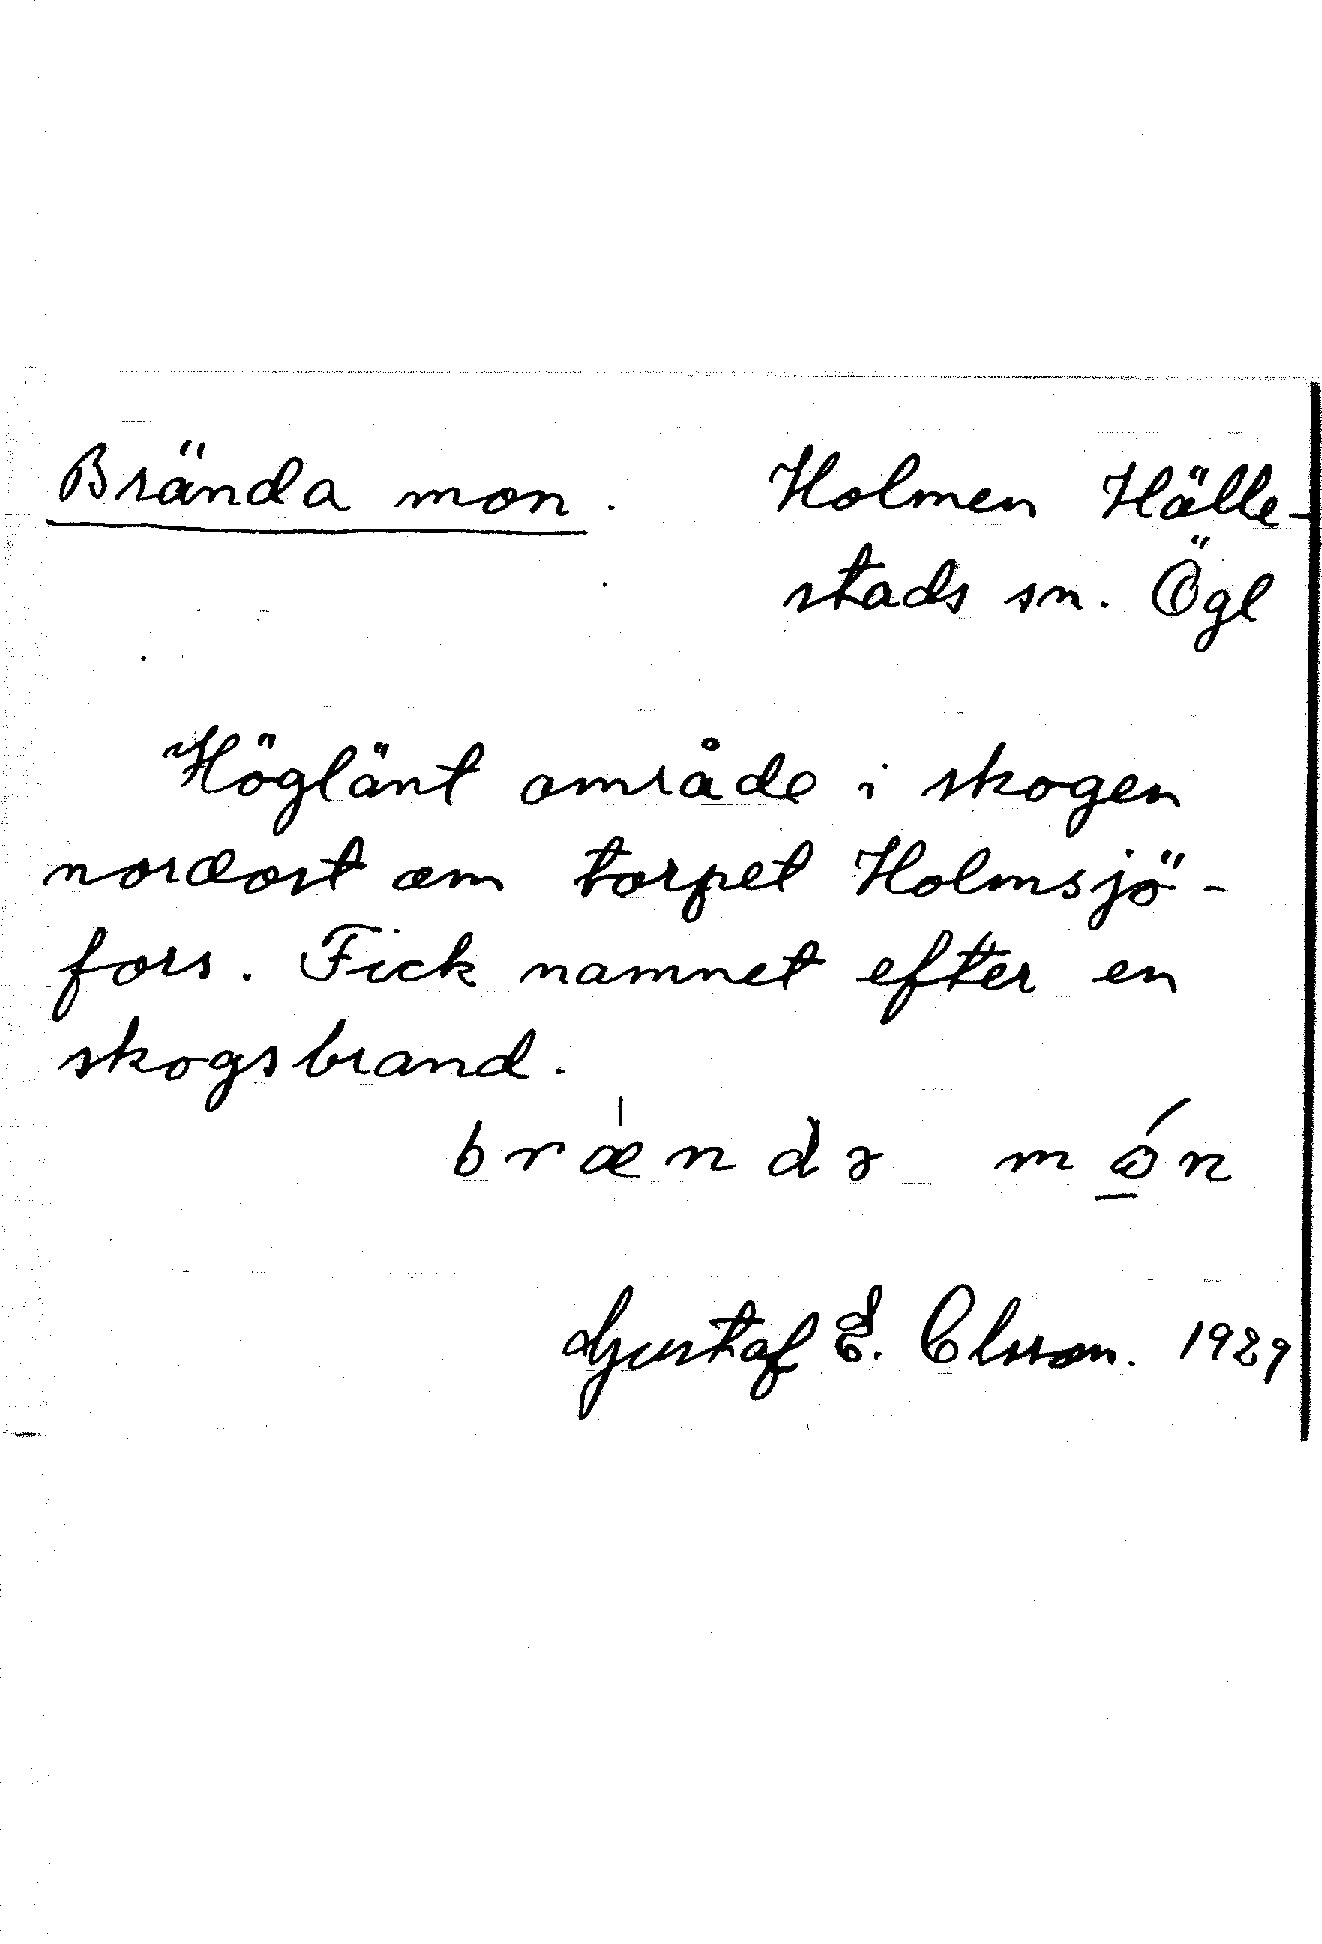 Brända mon. Holmen Hälle-
stads sn. Ögl
Höglänt område i skogen
nordost om torpet Holmsjö-
fors. Fick namnet efter en
skogsbrand.
brændə
Gustaf E. Olsson. 1929